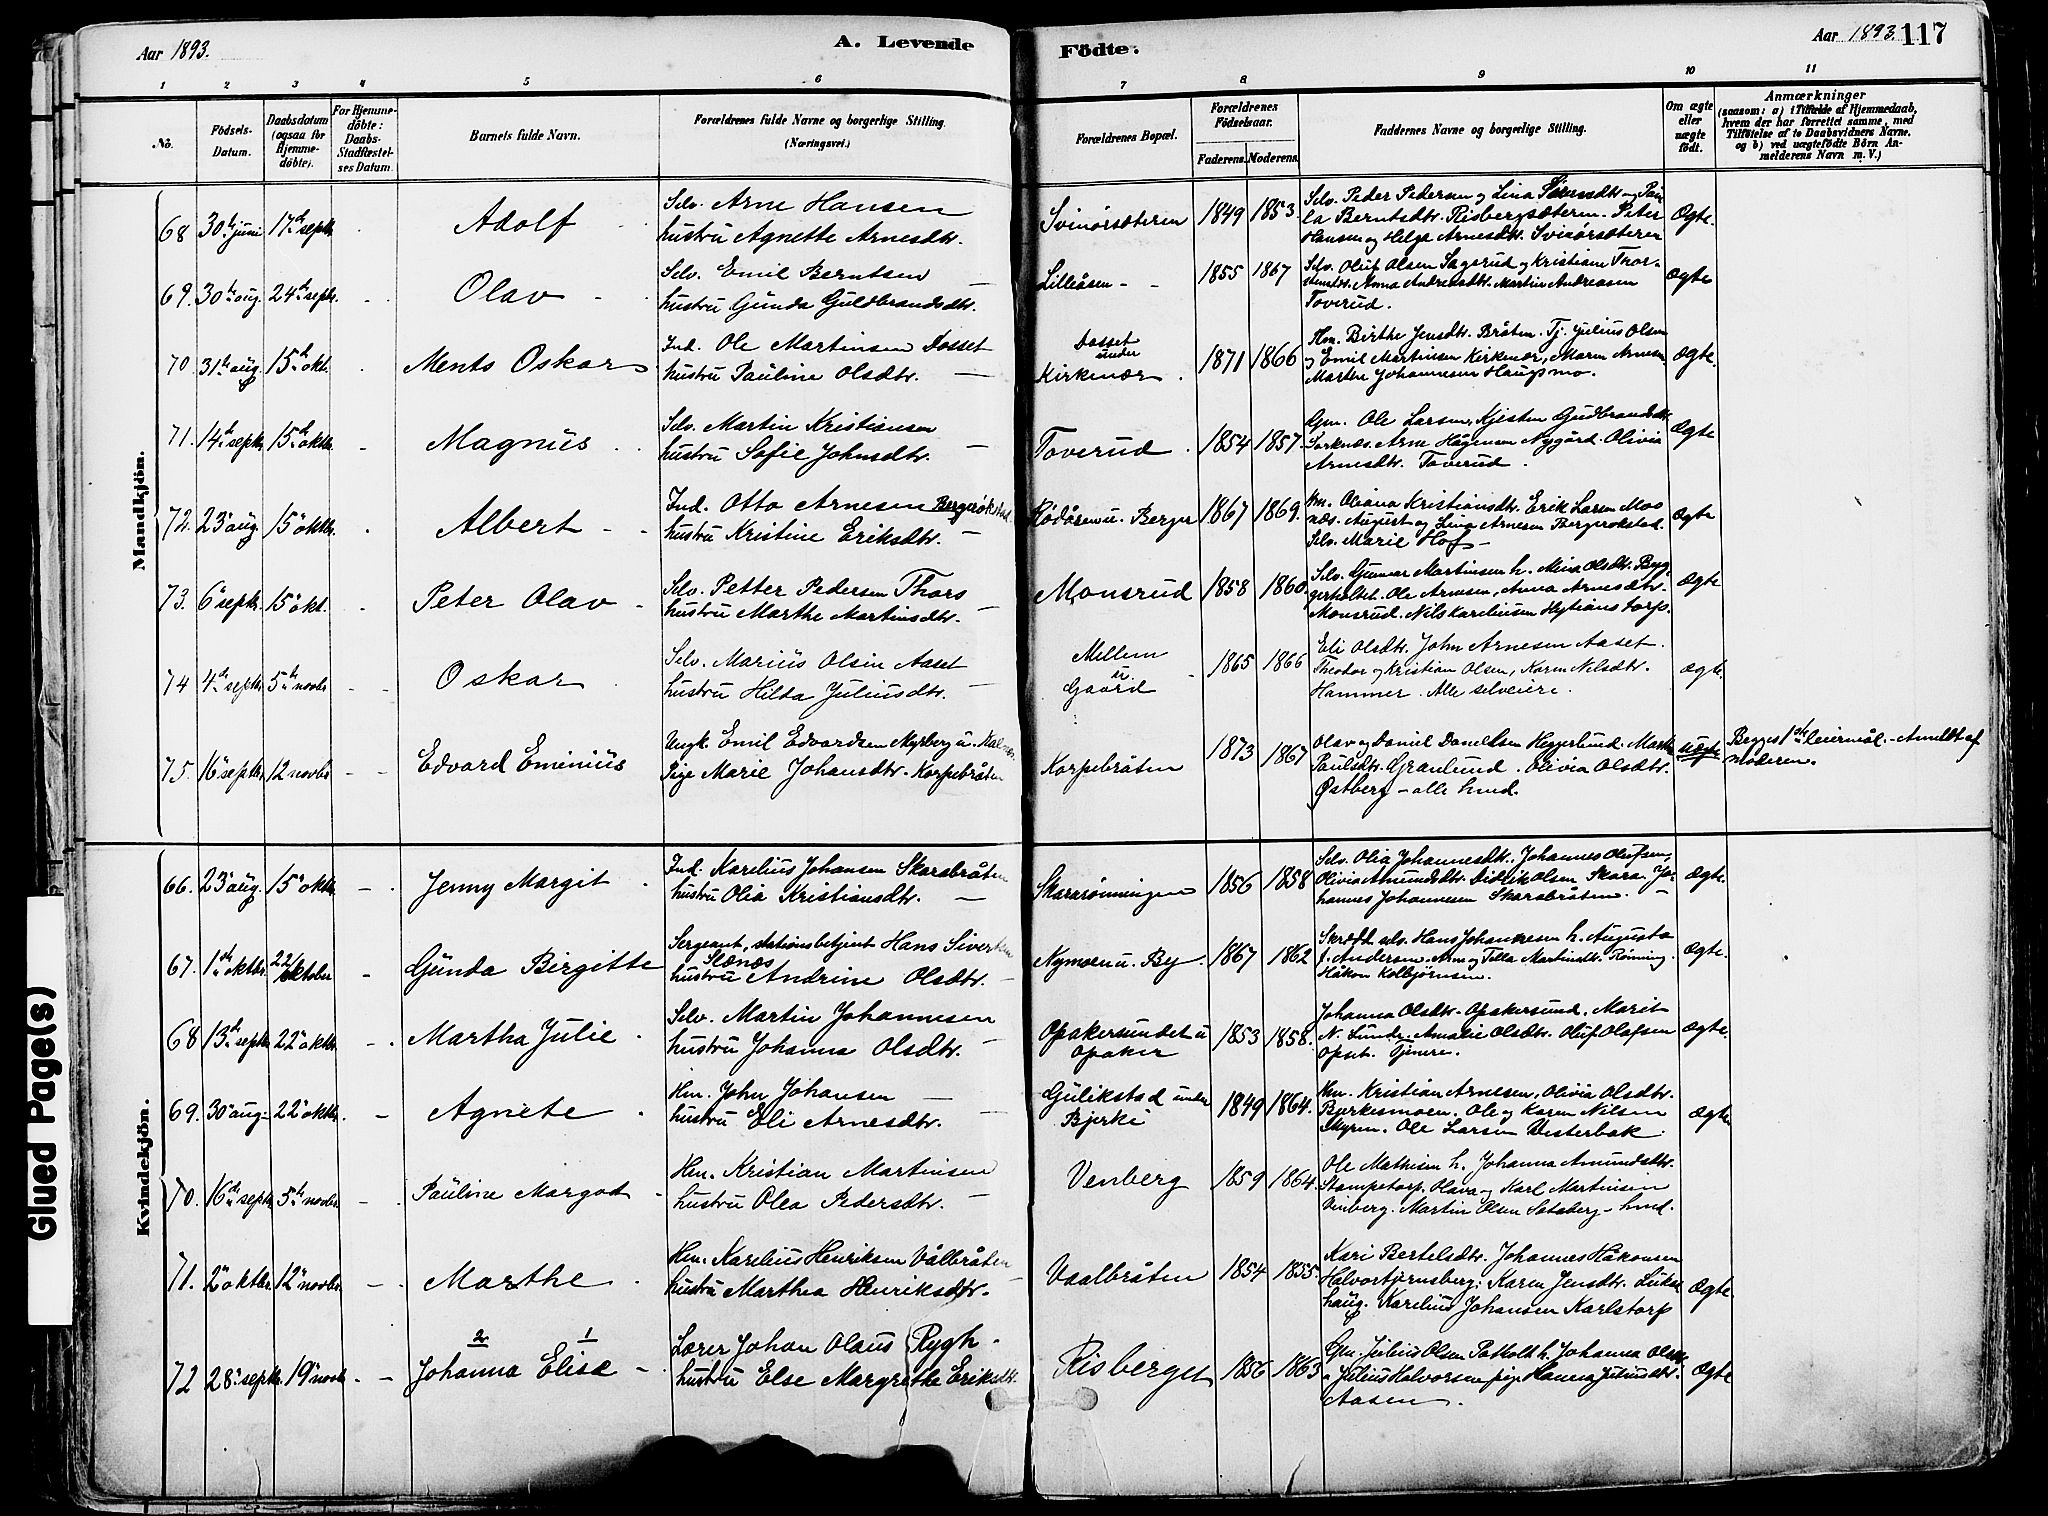 Aar 1893.
A. Levende
Födte.
Aar 1893. 117
1 2 3 4 5 6 7 8 9 10 11
No.
Födsels-Datum.
Daabsdatum (ogsaa for Hjemmedöbte).
For Hjemmedöbte: Daabs-Stadfæstelses Datum.
Barnets fulde Navn.
Forældrenes fulde Navne og borgerlige Stilling.
(Næringsvei.)
Forældrenes Bopæl.
Forældrenes Födselsaar.
Faderens. Moderens.
Faddernes Navne og borgerlige Stilling.
Om ægte eller uægte födt.
Anmærkninger
(saasom: a) i Tilfælde af Hjemmedaab,
hvem der har forrettet samme, med
Tilföielse af to Daabsvidners Navne.
og b) ved uægtefödte Börn An-
melderens Navn m. V.)
Mandkjön.
68 30te juni 17de septr. Adolf
Selv. Arne Hansen
hustru Agnette Arnesdtr.
Svinörsæteren 1849 1853.
Selv. Peder Pedersen og Lina
la Berntsdtr. Risbergsæteren. Peter
Hansen og Helga Arnesdtr. Svinörsæteren
Ægte.
69. 30te aug. 24de septr. Olav
Selv. Emil Berntsen
hustru Gunda Guldbrandsdtr.
Lilleåsen 1855 1867
Selv. Oluf Olsen Sagerud og Kristiane Thor-
Anna Andreasdtr. Martin Andreasen
Toverud.
Ægte
70 31te aug. 15de okt. Ments Oskar
Ind. Ole Martinsen Dosset
hustru Pauline Olsdtr.
Dosset under
Kirkenær. 1871 1866
Hm. Birthe Jensdtr. Bråten. Tj. Julius Olsen
og Emil Martinsen Kirkenær, Maren Arnesen
Marthe Johannesen Haugsmo.
Ægte.
71. 14de septr. 15de oktbr. Magnus
Selv. Martin Kristiansen
hustru Sofie Johnsdtr.
Toverud. 1854 1857.
Gm. Ole Larsen, Kjersten Gudbrandsdtr.
Sorknæs. Arne Hågensen Nygård. Olivia
Arnesdtr. Toverud.
Ægte
72. 23de aug. 15de oktbr. Albert
Ind. Otto Arnesen Bergerökstad
hustru Kristine Eriksdtr.
Rödåsen u. Berger 1867 1869.
Hm. Oliana Kristiansdtr. Erik Larsen Moe
næs. August og Lina Arnesen Bergerökstad.
Selv. Marie Hof
Ægte
73. 6te septr. 15de okt. Peter Olav
Selv. Petter Pedersen Thors
hustru Marthe Martinsdtr.
Monsrud 1858 1860.
Selv. Gunnar Martinsen h. Mina Olsdtr. Byg-
gerholtet. Ole Arnesen, Anna Arnesdtr.
Monsrud. Nils Karelinsen
Ægte
74 4de septr. 5te novbr. Oskar
Selv. Marius Olsen Aaset
hustru Hilda Juliusdtr.
Mellem u. Gaard 1865 1866
Eli Olsdtr. John Arnesen Aaset.
Theodor og Kristian Olsen, Karen Nilsdtr.
Hammer. Alle selveiere.
Ægte.
75. 16te septr. 12 novbr. Edvard Eminius
Ungk. Emil Edvardsen Myrberg u.
Pige Marie Johansdtr. Korpebråten
Korpebråten 1873 1867
Olav og Daniel Danielsen Heggerlund. Marthe
Paulsdtr. Granlund. Olivia Olsdtr.
Østberg – alle hmd.
uægte
Begges 1ste leiermål. – Anmeldt af
moderen.
Kvindekjön.
66. 23de aug. 15de oktbr. Jenny Margit
Ind. Karelius Johansen Skarabråten
hustru Olia Kristiansdtr.
Skararønningen 1856 1858
Selv. Olia Johannesdtr. Johannes Olufsen,
Olivia Amundsdtr. Didrik Olsen Skara. Jo-
hannes Johannesen Skarabråten.
Ægte.
67. 1ste oktbr. 22/ oktober Gunda Birgitte
Sergeant, stationsbetjent Hans Sivertsen
hustru Andrine Olsdtr.
Nymoen u. By 1867 1862
Skrædd. selv. Hans Johannesen h. Augusta
f. Andersen. Arne og Tilla Martinsdtr. Rönning.
Håkon Kolbjörnsen.
Ægte.
68 13de septr. 22de oktbr. Martha Julie
Selv. Martin Johannesen
hustru Johanna Olsdtr.
Opakersundet u
Opaker 1853 1858.
Johanna Olsdtr. Opakersund. Marit
N. Lunder. Amalie Olsdtr. Oluf Olafsen
Opset.
Ægte.
69. 30te aug. 22de oktbr. Agnete
Hm. John Johansen
hustru Eli Arnesdtr.
Gulikstad under
Bjerke 1849 1864.
Hm. Kristian Arnesen, Olivia Olsdtr.
Bjerkesmoen. Ole og Karen Nilsen
Myren. Ole Larsen Vesterbak.
Ægte
70. 16de septr. 5te novbr. Pauline Margod
Hm. Kristian Martinsen
hustru Olea Pedersdtr.
Venberg 1859 1864.
Ole Mathisen h. Johanna Amundsdtr.
Stampetorp. Olava og Karl Martinsen
Venberg. Martin Olsen Sætaberg – hmd.
Ægte.
71. 2de oktbr. 12te novbr. Marthe
Hm. Karelius Henriksen Vålbråten
hustru Marthea Henriksdtr.
Vaalbråten 1854 1855.
Kari Bertelsdtr. Johannes Håkonsen
Halvortjernsberg. Karen Jensdtr.
haug. Karelius Johansen Karlstorp
Ægte.
72 28de septr. 19de novbr. Johanna Elise
2 1
Lærer Johan Olaus Rygh
hustru Else Margrethe Eriksdtr.
Risberget 1856 1863
Gm. Julius Olsen Patholt h. Johanna Olsdtr.
Julius Halvorsen pige Hanna Juliusdtr.
Aasen.
Ægte
Glued Page(s)